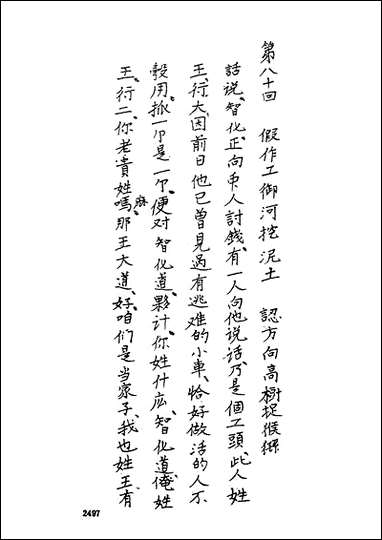 第八十回　假作工御河挖泥土　認方向高樹捉猴猻
話説、智化、正向衆人討錢、有一人向他说话、乃是個工頭、此人姓
王、行大、因前日他已曾見過有逃难的小車、恰好做活的人不
彀用、抓一个是一个、便对智化道、夥计、你姓什庅、智化道、俺姓
王、行二、你老貴姓嗎、麻那王大道、好、咱们是当家子、我也姓王、有
2497